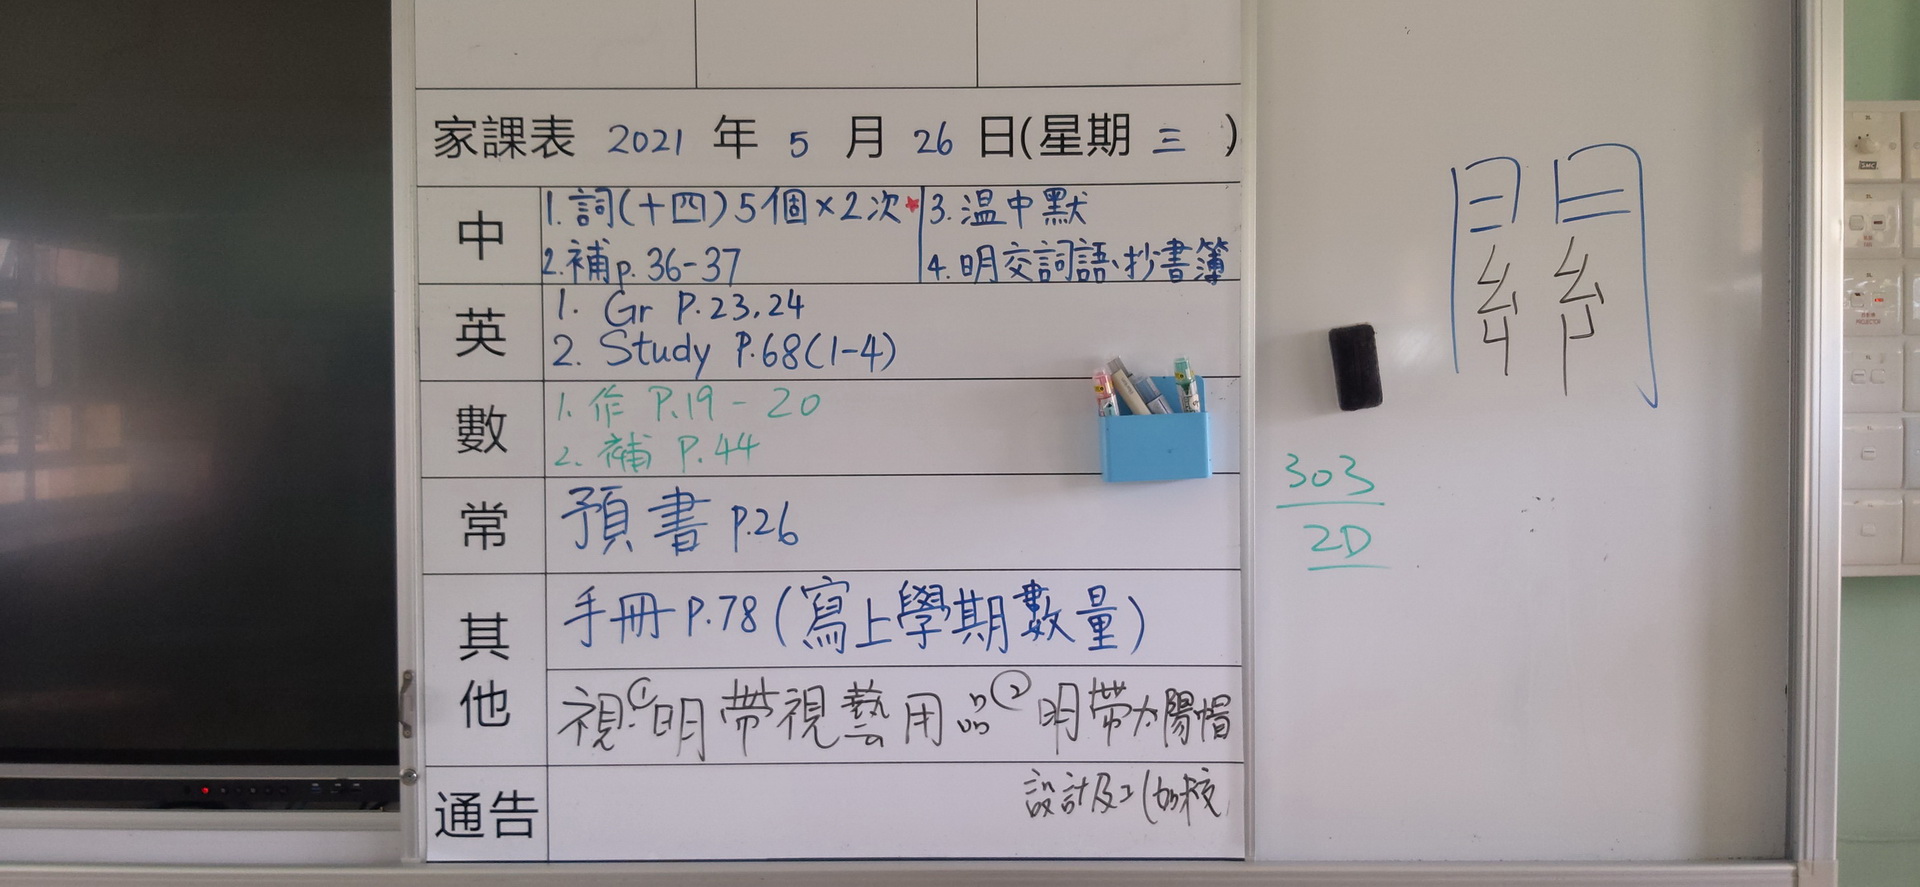 家課表 2021 年 5 月 26 日(星期 三 )
中
1. 詞(十四) 5個×2次★
2. 補p. 36-37
3. 温中默
4. 明交詞語、抄書簿
英
1. Gr P.23,24
2. Study P.68(1-4)
數
1. 作 P.19 - 20
2. 補 P.44
常
預書 p.26
其他
手冊 P.78 (寫上學期數量)
視:①明帶視藝用品②明帶太陽帽
設計及工(如校
通告
關
303
2D